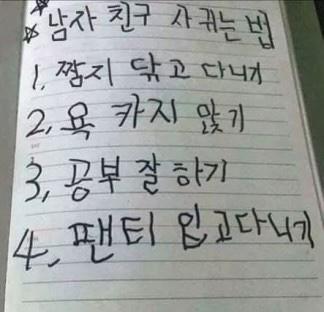 ☆☆남자 친구 사귀는 법
1. 짬지 닦고 다니기
2, 욕 카지 않기
3, 공부 잘 하기
4. 팬티 입고다니기